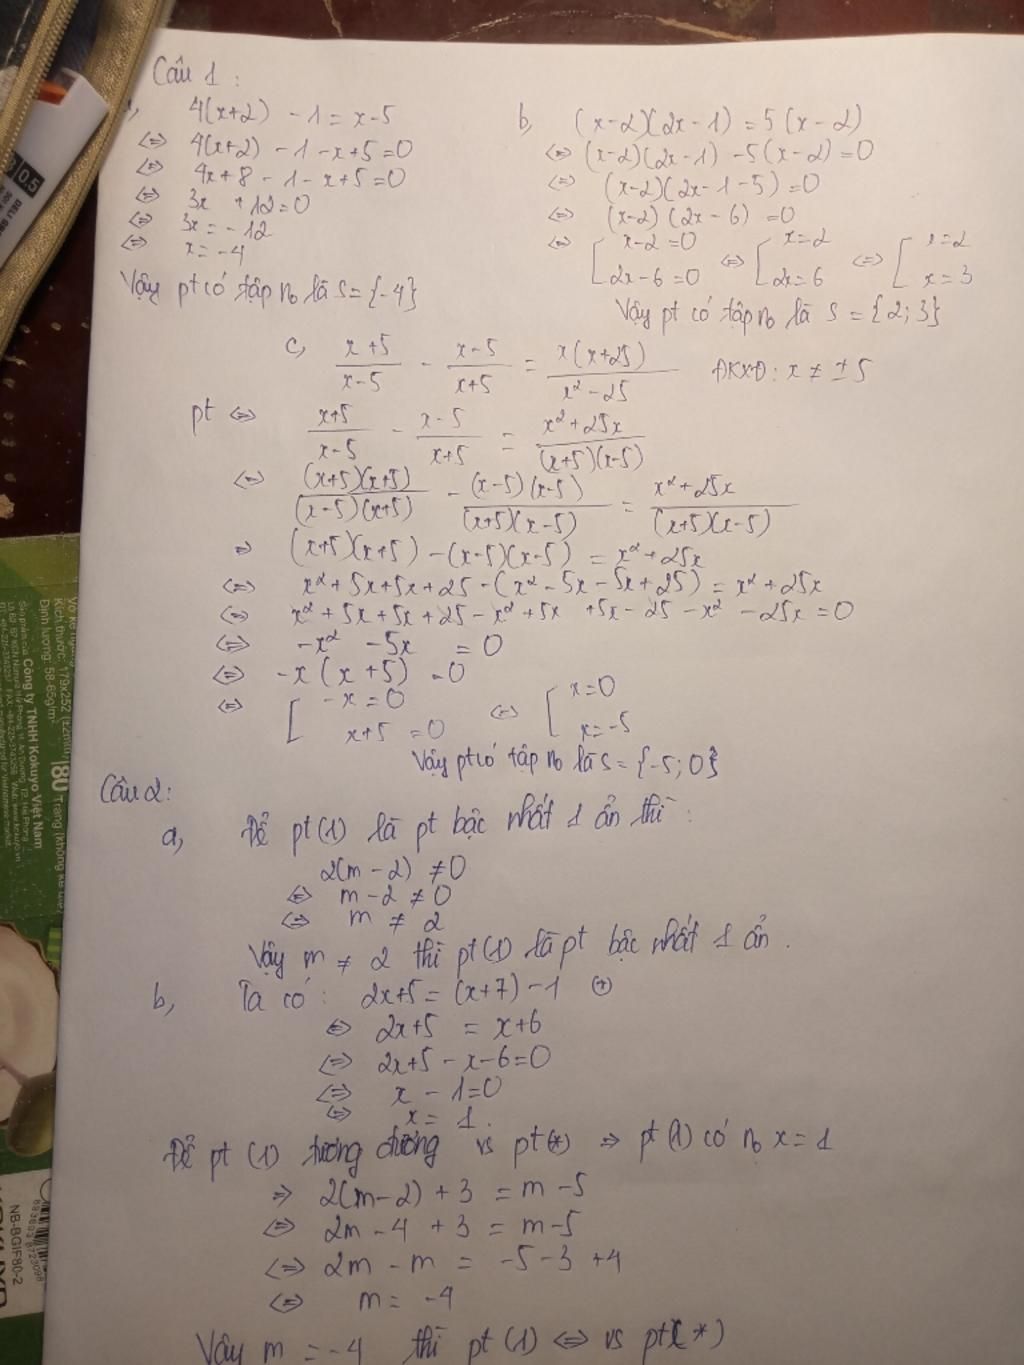 Câu 1 :
4(x+2) - 1 = x-5
⇔ 4(x+2) - 1 - x+5 = 0
⇔ 4x+8 - 1 - x+5 = 0
⇔ 3x + 12 = 0
⇔ 3x = -12
⇔ x = -4
Vậy pt có tập no là S = {-4}
b, (x-2)(2x-1) = 5(x-2)
⇔ (x-2)(2x-1) - 5(x-2) = 0
⇔ (x-2)(2x-1-5) = 0
⇔ (x-2)(2x-6) = 0
⇔ [ x-2 = 0 ⇔ [ x = 2 ⇔ [ x = 2
2x-6 = 0 2x = 6 x = 3
Vậy pt có tập no là S = {2; 3}
c, (x+5)/(x-5) - (x-5)/(x+5) = x(x+25)/(x²-25) ĐKXĐ: x ≠ ±5
pt ⇔ (x+5)/(x-5) - (x-5)/(x+5) = (x²+25x)/((x+5)(x-5))
⇔ (x+5)(x+5)/((x-5)(x+5)) - (x-5)(x-5)/((x+5)(x-5)) = (x²+25x)/((x+5)(x-5))
⇒ (x+5)(x+5) - (x-5)(x-5) = x²+25x
⇔ x²+5x+5x+25 - (x²-5x-5x+25) = x²+25x
⇔ x²+5x+5x+25-x²+5x+5x-25-x²-25x = 0
⇔ -x² -5x = 0
⇔ -x(x+5) = 0
⇔ [ -x = 0 ⇔ [ x = 0
x+5 = 0 x = -5
Vậy pt có tập no là S = {-5; 0}
Câu 2:
a, Để pt (1) là pt bậc nhất 1 ẩn thì :
2(m-2) ≠ 0
⇔ m-2 ≠ 0
⇔ m ≠ 2
Vậy m ≠ 2 thì pt (1) là pt bậc nhất 1 ẩn .
b, Ta có : 2x+5 = (x+7) - 1 (*)
⇔ 2x+5 = x+6
⇔ 2x+5 - x-6 = 0
⇔ x - 1 = 0
⇔ x = 1 .
Để pt (1) tương đương vs pt (*) ⇒ pt (1) có no x = 1
⇒ 2(m-2) + 3 = m-5
⇔ 2m - 4 + 3 = m-5
⇔ 2m - m = -5-3+4
⇔ m = -4
Vậy m = -4 thì pt (1) ⇔ vs pt (*)
0.5
DELI
Kích thước: 179x252
Định lượng: 58-65g/m²
Công ty TNHH Kokuyo Việt Nam
180 Trang
NB-BGIF80-2